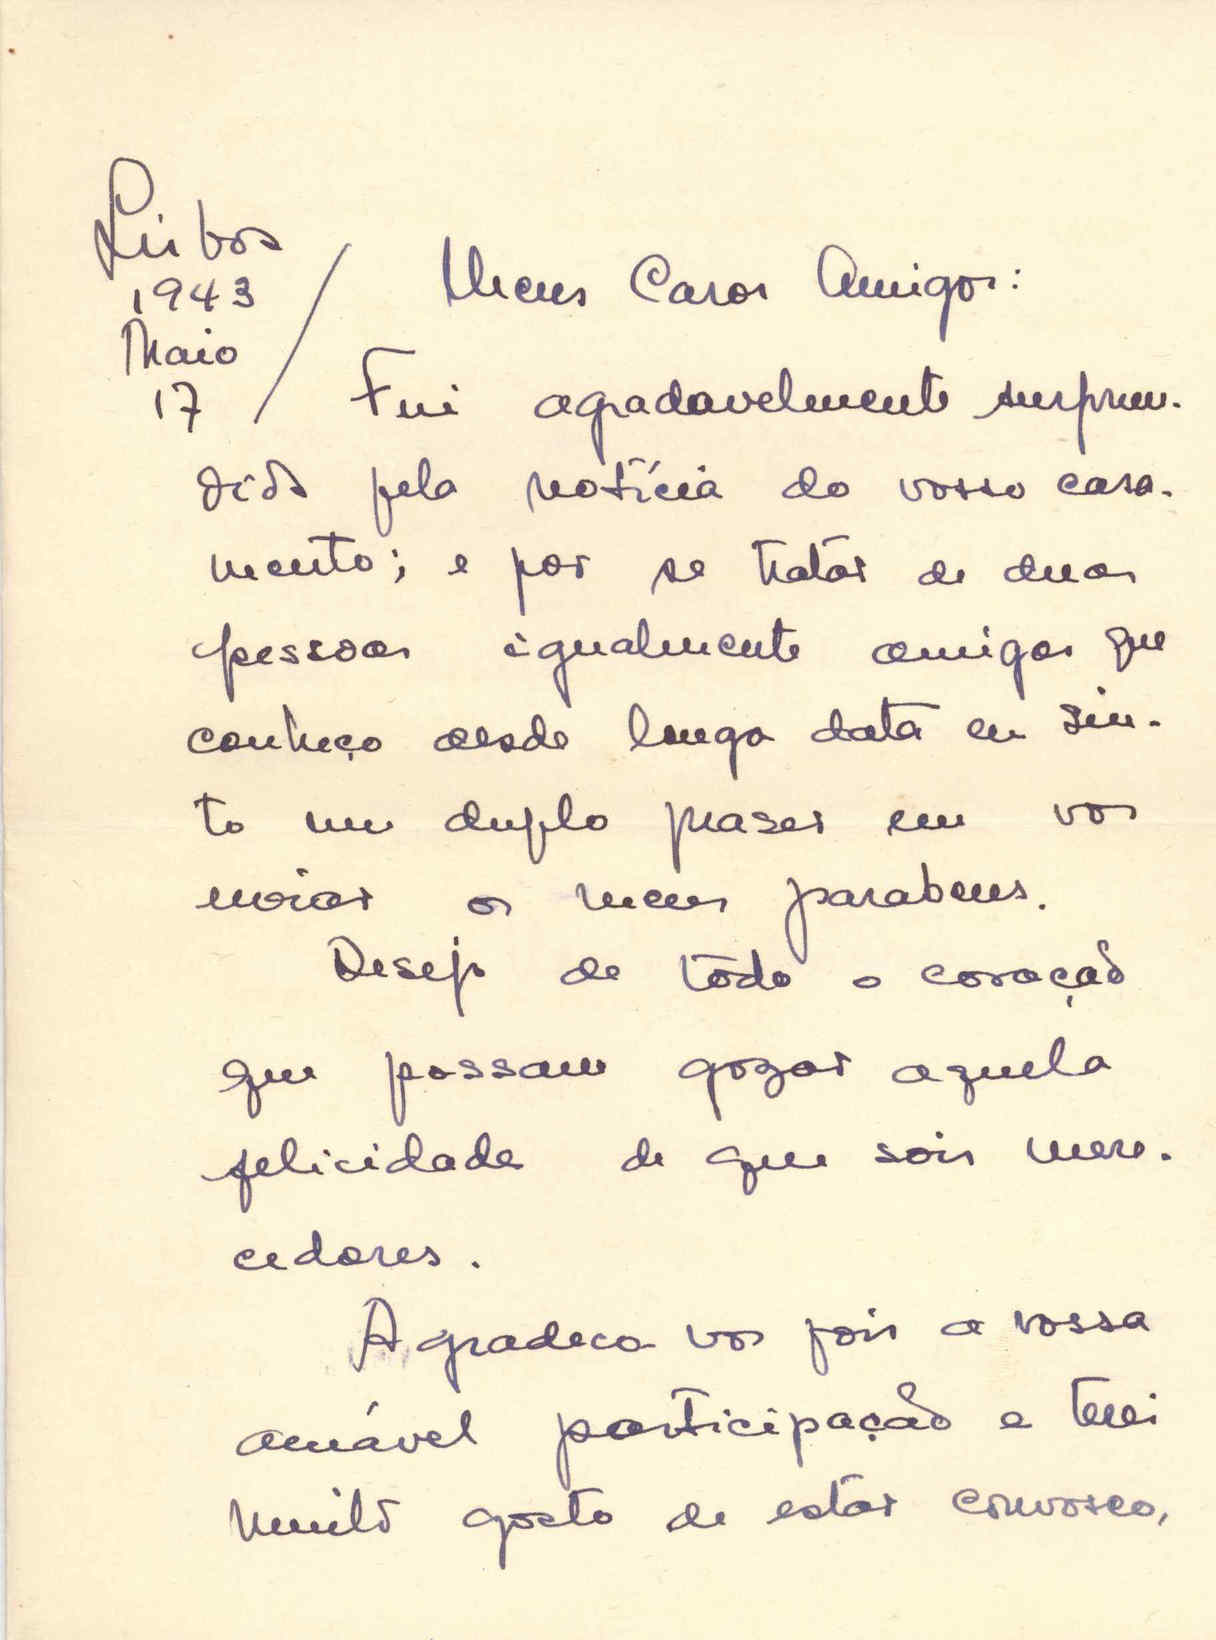 Lisboa
1943
Maio
17
Meus Caros Amigos:
Fui agradavelmente surpreen-
dido pela notícia do vosso casa-
mento; e por se tratar de duas
pessoas igualmente amigas que
conheço desde longa data eu sin-
to um duplo praser em vos
enviar os meus parabens.
Desejo de todo o coração
que possam gozar aquela
felicidade de que sois mere-
cedores.
Agradeço vos pois a vossa
amável participação e terei
muito gosto de estar convosco,